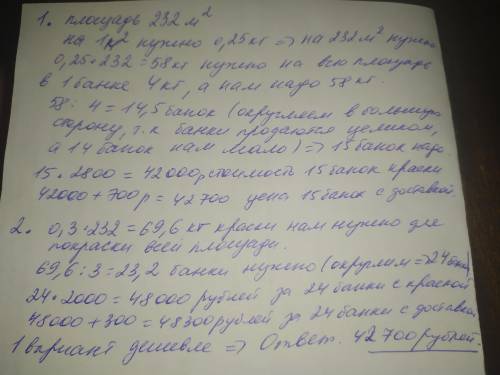 1. площадь 232 м²
на 1м² нужно 0,25кг ⇒ на 232м² нужно
0,25·232=58кг нужно на всю площадь
в 1 банке 4кг, а нам надо 58 кг.
58:4=14,5 банок (округляем в большую
сторону, т.к банки продаются целиком,
а 14 банок нам мало) ⇒ 15 банок надо.
15·2800=42000р стоимость 15 банок краски
42000+700р=42700 цена 15 банок с доставкой.
2. 0,3·232=69,6 кг краски нам нужно для
покраски всей площади.
69,6:3=23,2 банки нужно (округлим ⇒ 24 банки)
24·2000=48000 рублей за 24 банки с краской
48000+300=48300 рублей за 24 банки с доставкой
1 вариант дешевле ⇒ Ответ. 42700 рублей.